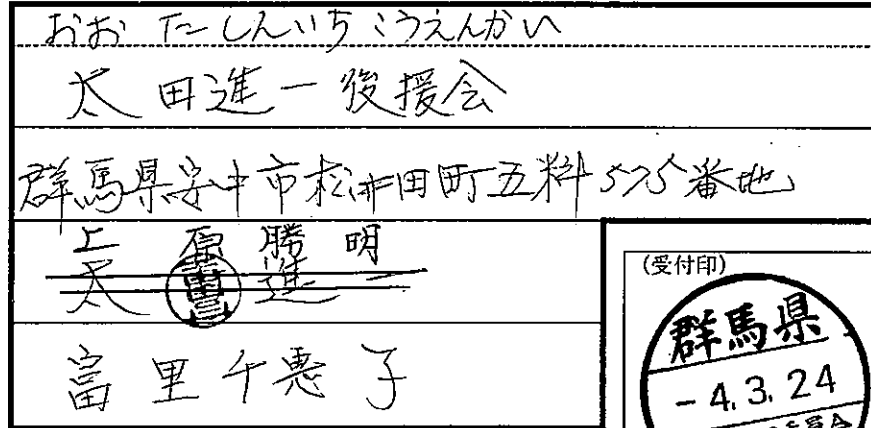 おおたしんいちこうえんかい
太田進一後援会
群馬県安中市松井田町五料575番地
上原勝明
太 進一
富里千恵子
(受付印)
群馬県
-4.3.24
委員会